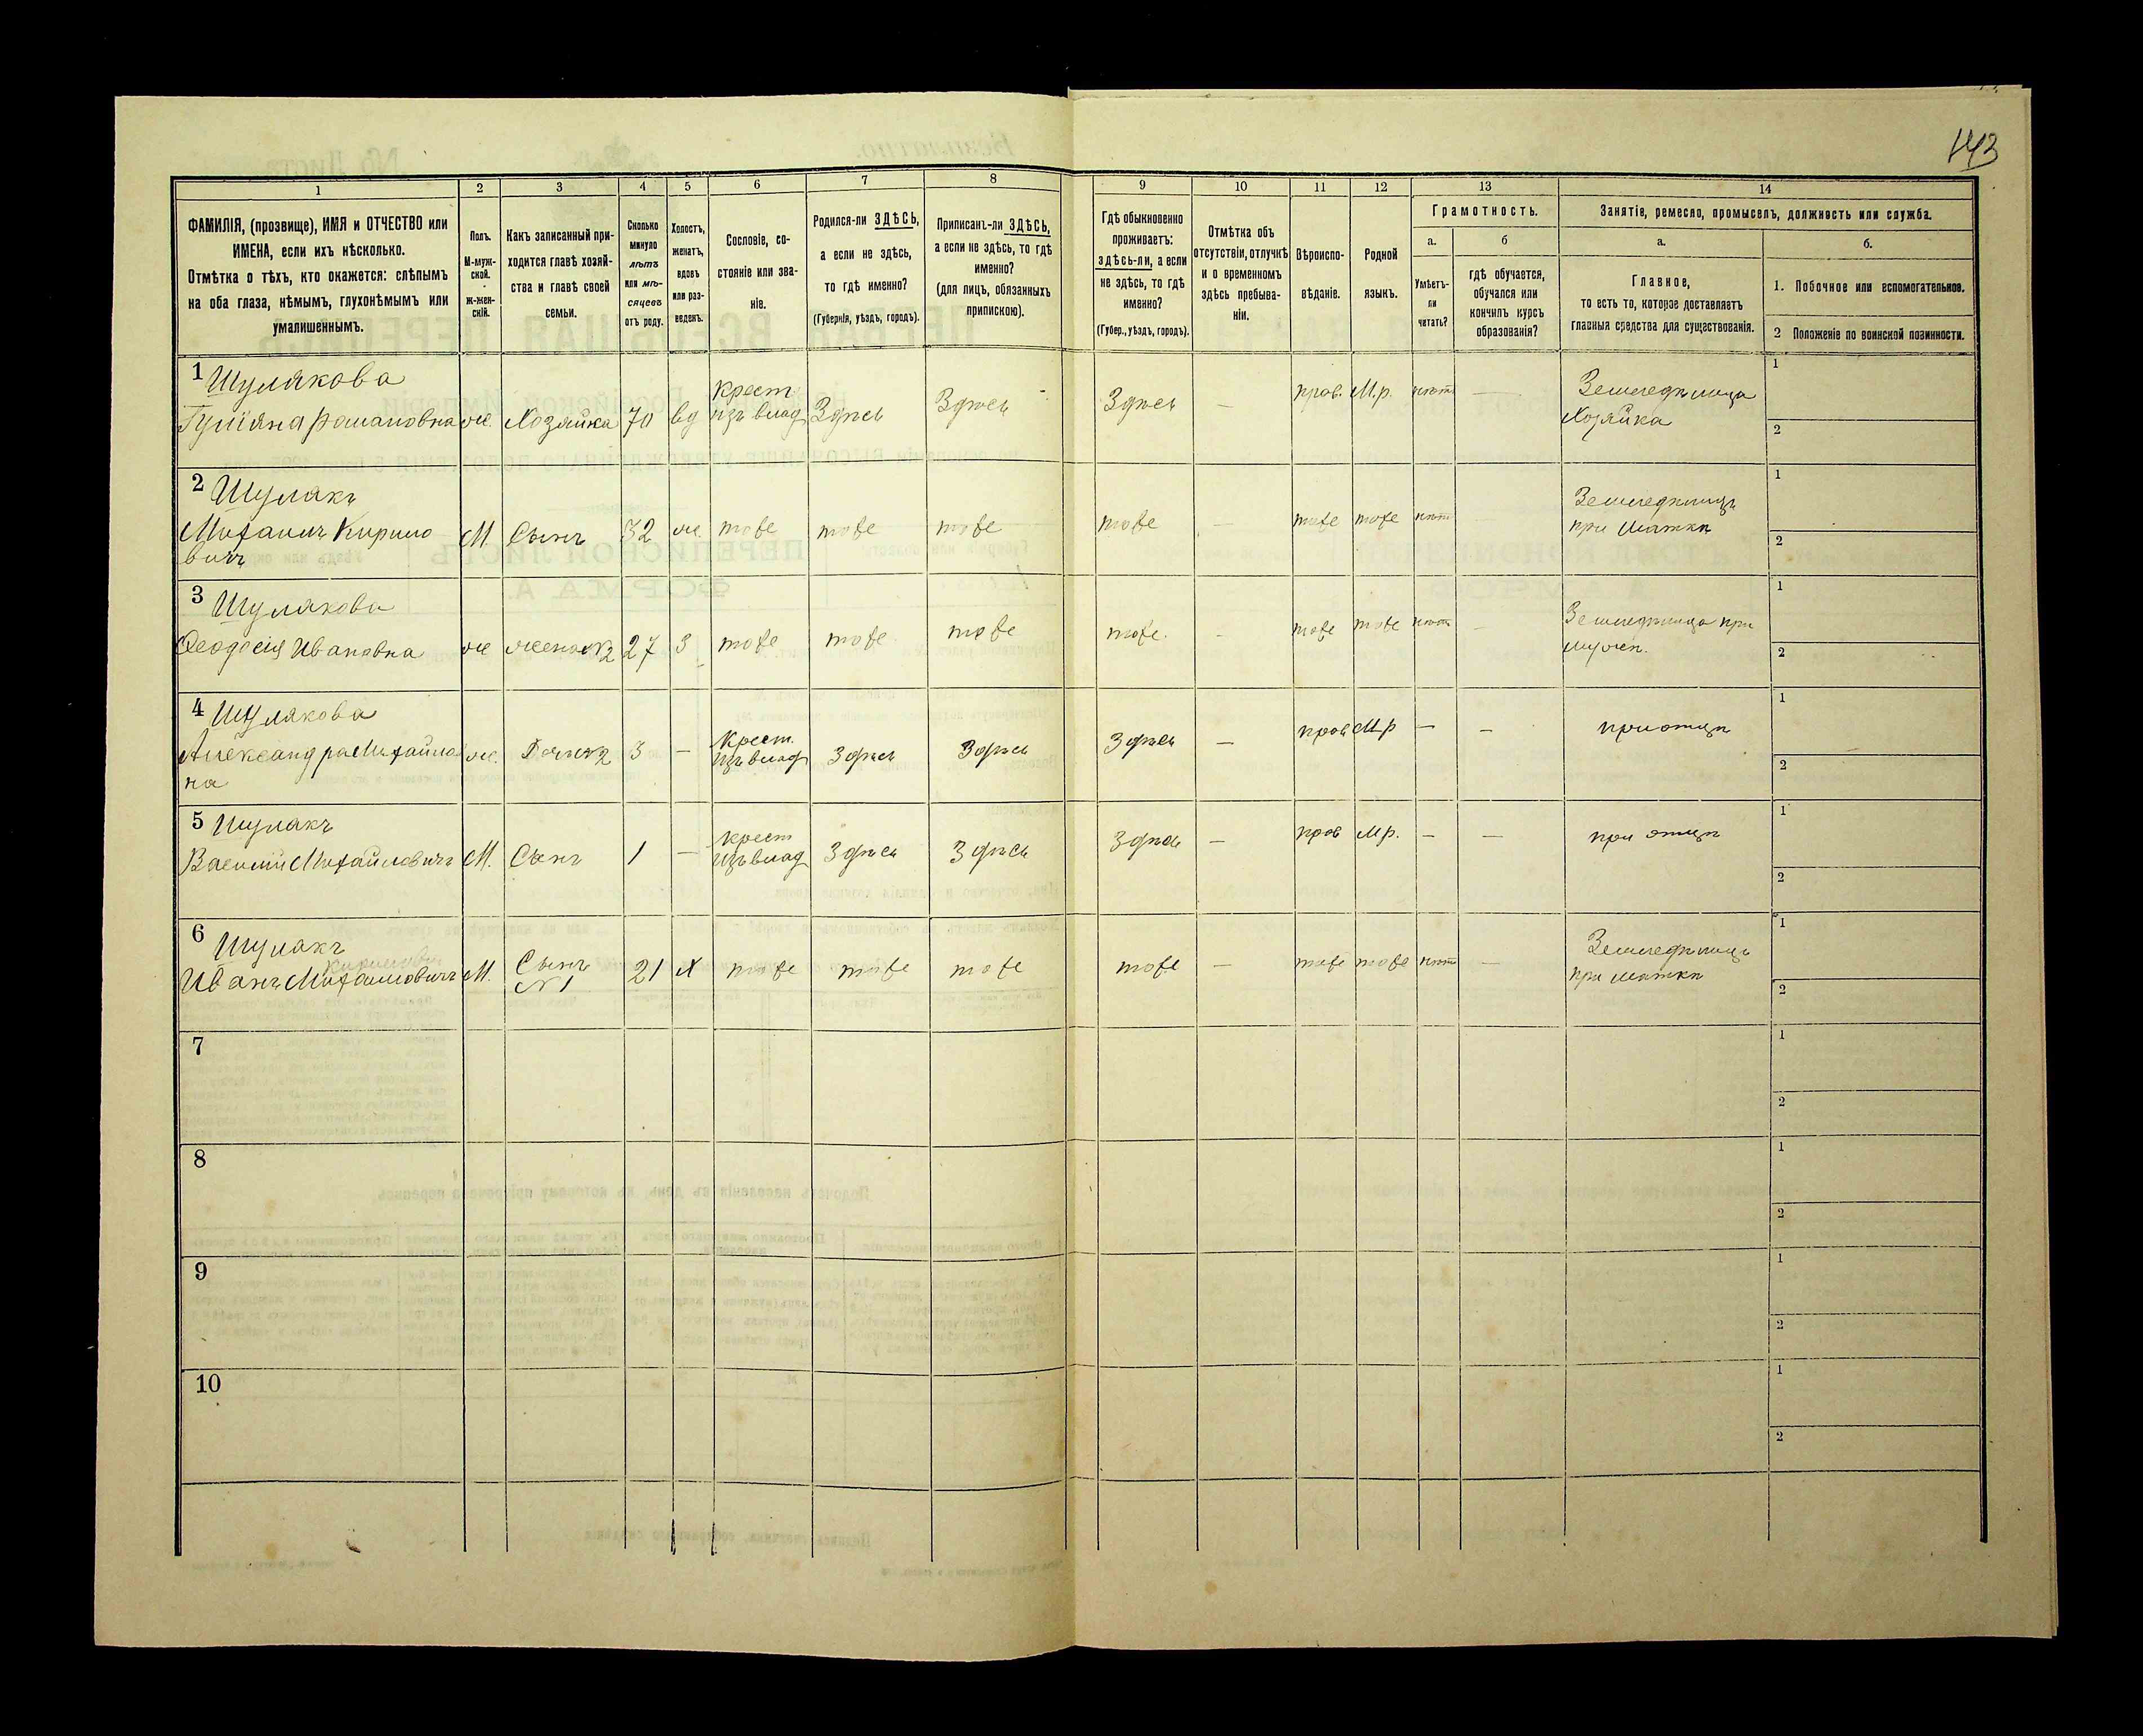 143
1
2
3
4
5
6
7
8
9
10
11
12
13
14
ФАМИЛІЯ, (прозвище), ИМЯ и ОТЧЕСТВО или
ИМЕНА, если ихъ нѣсколько.
Отмѣтка о тѣхъ, кто окажется: слѣпымъ
на оба глаза, нѣмымъ, глухонѣмымъ или
умалишеннымъ.
Полъ.
М-муж-
ской.
ж-жен-
скій.
Какъ записанный при-
ходится главѣ хозяй-
ства и главѣ своей
семьи.
Сколько
минуло
лѣтъ
или мѣ-
сяцевъ
отъ роду.
Холостъ,
женатъ,
вдовъ
или раз-
веденъ.
Сословіе, со-
стояніе или зва-
ніе.
Родился-ли ЗДѢСЬ,
а если не здѣсь,
то гдѣ именно?
(Губернія, уѣздъ, городъ).
Приписанъ-ли ЗДѢСЬ,
а если не здѣсь, то гдѣ
именно?
(для лицъ, обязанныхъ
припискою).
Гдѣ обыкновенно
проживаетъ:
здѣсь-ли, а если
не здѣсь, то гдѣ
именно?
(Губер., уѣздъ, городъ).
Отмѣтка объ
отсутствіи, отлучкѣ
и о временномъ
здѣсь пребыва-
ніи.
Вѣроиспо-
вѣданіе.
Родной
языкъ.
Грамотность.
а.
Умѣетъ-
ли
читать?
б
гдѣ обучается,
обучался или
кончилъ курсъ
образованія?
Занятіе, ремесло, промыселъ, должность или служба.
а.
Главное,
то есть то, которое доставляетъ
главныя средства для существованія.
б.
1. Побочное или вспомогательное.
2 Положеніе по воинской повинности.
1 Шулякова
Романовна ж. Хозяйка 70 вд Крест изъ влад Здѣсь Здѣсь Здѣсь — прав. М.р. нѣтъ — Земледѣлица
Хозяйка
1
2
2 Шулякъ
Михаилъ Кирило
вичъ М. Сынъ 32 ж. тоже тоже тоже тоже — тоже тоже нѣтъ Земледѣлецъ
при маткѣ
1
2
3 Шулякова
Феодосія Ивановна ж жена №2 27 З тоже тоже тоже тоже — тоже тоже нѣтъ — Земледѣлица при
мужѣ.
1
2
4 Шулякова
Александра Михайлов
на ж. Дочь №2 3 — Крест. изъ влад Здѣсь Здѣсь Здѣсь — прав М.р — — при отцѣ
1
2
5 Шулякъ
Василій Михайловичъ М. Сынъ 1 — крест изъ влад Здѣсь Здѣсь Здѣсь — прав М.р. — — при отцѣ
1
2
6 Шулякъ
Кириловичъ
Иванъ Михаиловичъ М. Сынъ №1 21 Х тоже тоже тоже тоже — тоже тоже нѣтъ — Земледѣлецъ
при маткѣ
1
2
7
1
2
8
1
2
9
1
2
10
1
2